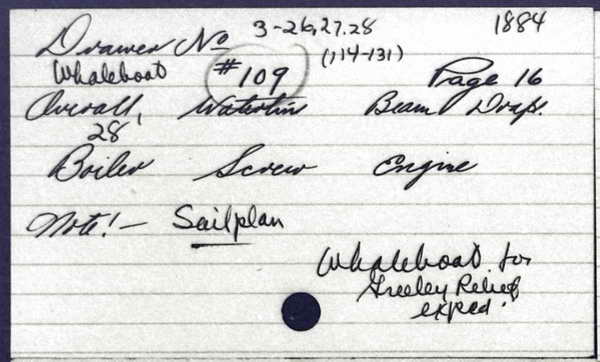 3-26,27.28 1884
Drawer No (114-131)
Whaleboat #109 Page 16
Overall, Waterline Beam Draft.
28
Boiler Screw Engine
Note! - Sailplan
Whaleboat for
Greeley Relief
exped.